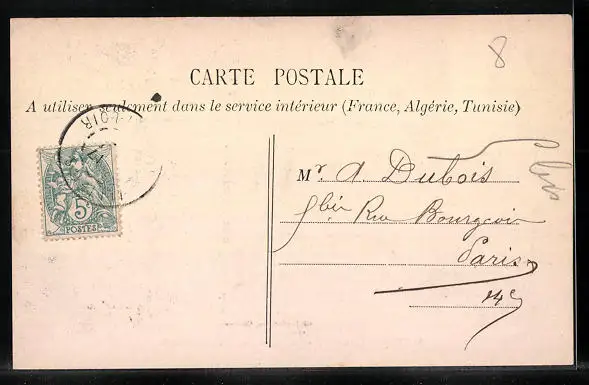 8
CARTE POSTALE
A utiliser seulement dans le service intérieur (France, Algérie, Tunisie)
LOIR
5c
POSTES
Mr. A. Dubois
bis
Rue Bourgeois
Paris
14e